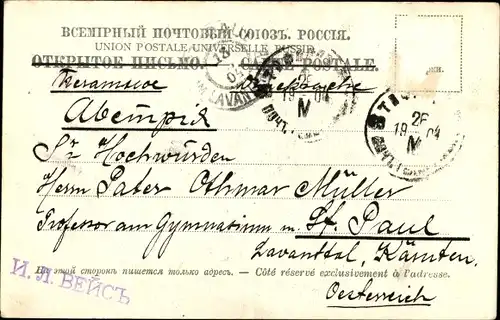 ВСЕМІРНЫЙ ПОЧТОВЫЙ СОЮЗЪ. РОССІЯ.
UNION POSTALE UNIVERSELLE RUSSIE
ОТКРЫТОЕ ПИСЬМО. — CARTE POSTALE.
Австрія
Sr Hochwürden
Herrn Pater Othmar Müller
Professor am Gymnasium in St. Paul
Lavanttal, Kärnten,
На этой сторонѣ пишется только адресъ. — Côté réservé exclusivement à l'adresse.
Oesterreich
И. Л. ВЕЙСЪ
26
19 04
IV
26
19 04
IV